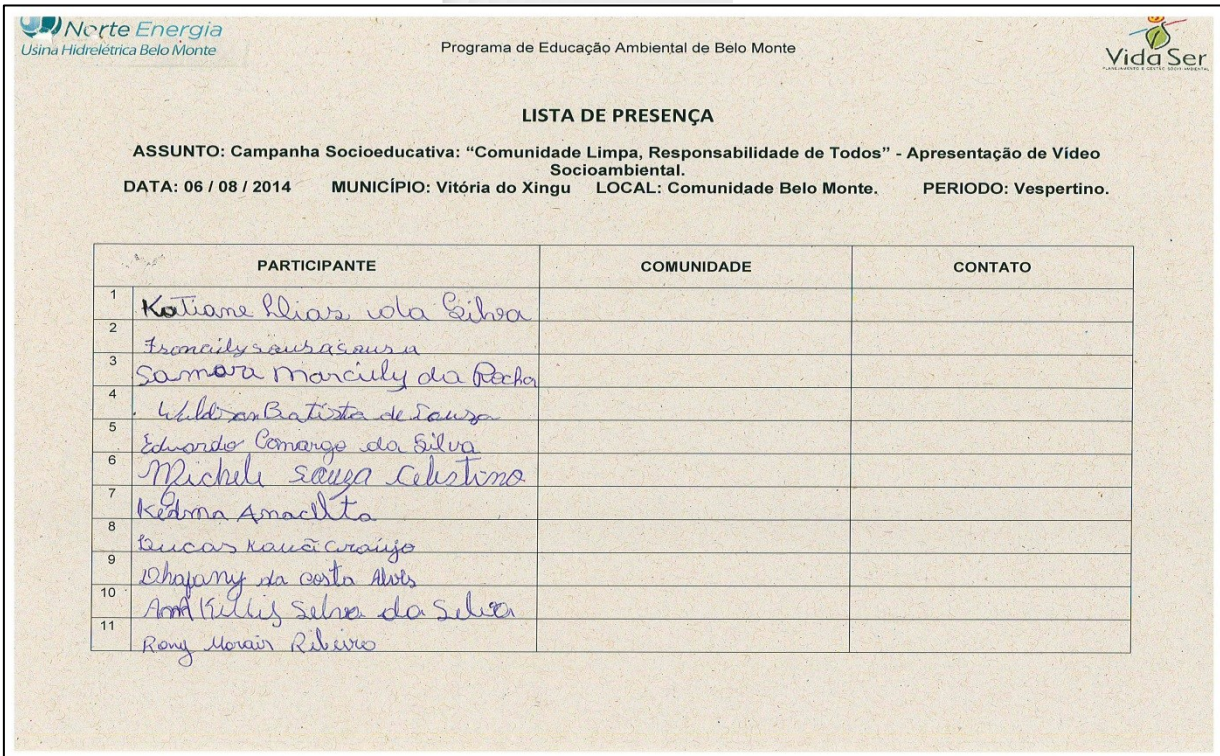 Norte Energia
Usina Hidrelétrica Belo Monte
Programa de Educação Ambiental de Belo Monte
Vida Ser
LISTA DE PRESENÇA
ASSUNTO: Campanha Socioeducativa: “Comunidade Limpa, Responsabilidade de Todos” - Apresentação de Vídeo
Socioambiental.
DATA: 06 / 08 / 2014 MUNICÍPIO: Vitória do Xingu LOCAL: Comunidade Belo Monte. PERIODO: Vespertino.
PARTICIPANTE COMUNIDADE CONTATO
1 Katiane Dias da Silva
2 sousa
3 Samara Marciely da Rocha
4 Batista de Souza
5 Eduardo Camargo da Silva
6 Micheli Souza Celestino
7 Kedma Anaclita
8 Lucas Kauã Araújo
9 da costa Alves
10 Selva da Selva
11 Rony Morais Ribeiro